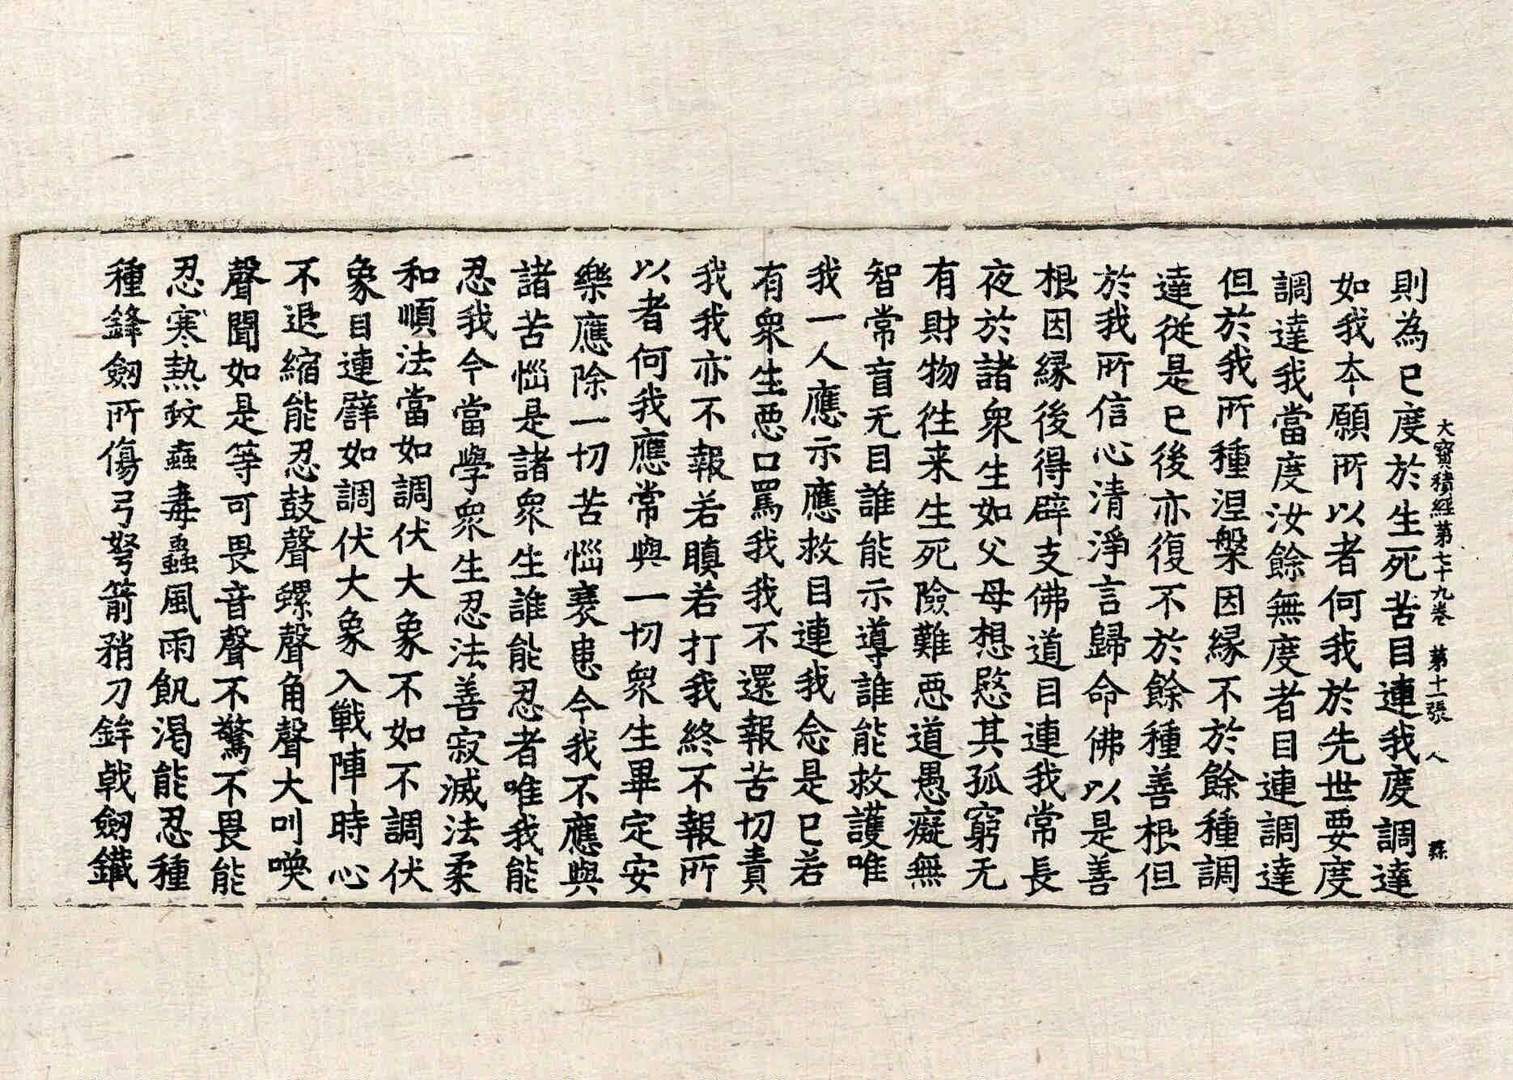 大寶積經第七十九卷 第十一張 人
則為已度於生死苦目連我度調達
如我本願所以者何我於先世要度
調達我當度汝餘無度者目連調達
但於我所種涅槃因緣不於餘種調
達從是已後亦復不於餘種善根但
於我所信心清淨言歸命佛以是善
根因緣後得辟支佛道目連我常長
夜於諸眾生如父母想愍其孤窮无
有財物往来生死險難惡道愚癡無
智常盲无目誰能示導誰能救護唯
我一人應示應救目連我念是已若
有眾生惡口罵我我不還報苦切責
我我亦不報若瞋若打我終不報所
以者何我應常與一切眾生畢定安
樂應除一切苦惱衰患今我不應與
諸苦惱是諸眾生誰能忍者唯我能
忍我今當學眾生忍法善寂滅法柔
和順法當如調伏大象不如不調伏
象目連譬如調伏大象入戰陣時心
不退縮能忍鼓聲螺聲角聲大叫喚
聲聞如是等可畏音聲不驚不畏能
忍寒熱蚊蝱毒蟲風雨飢渴能忍種
種鋒劒所傷弓弩箭矟刀鉾戟劒鐵